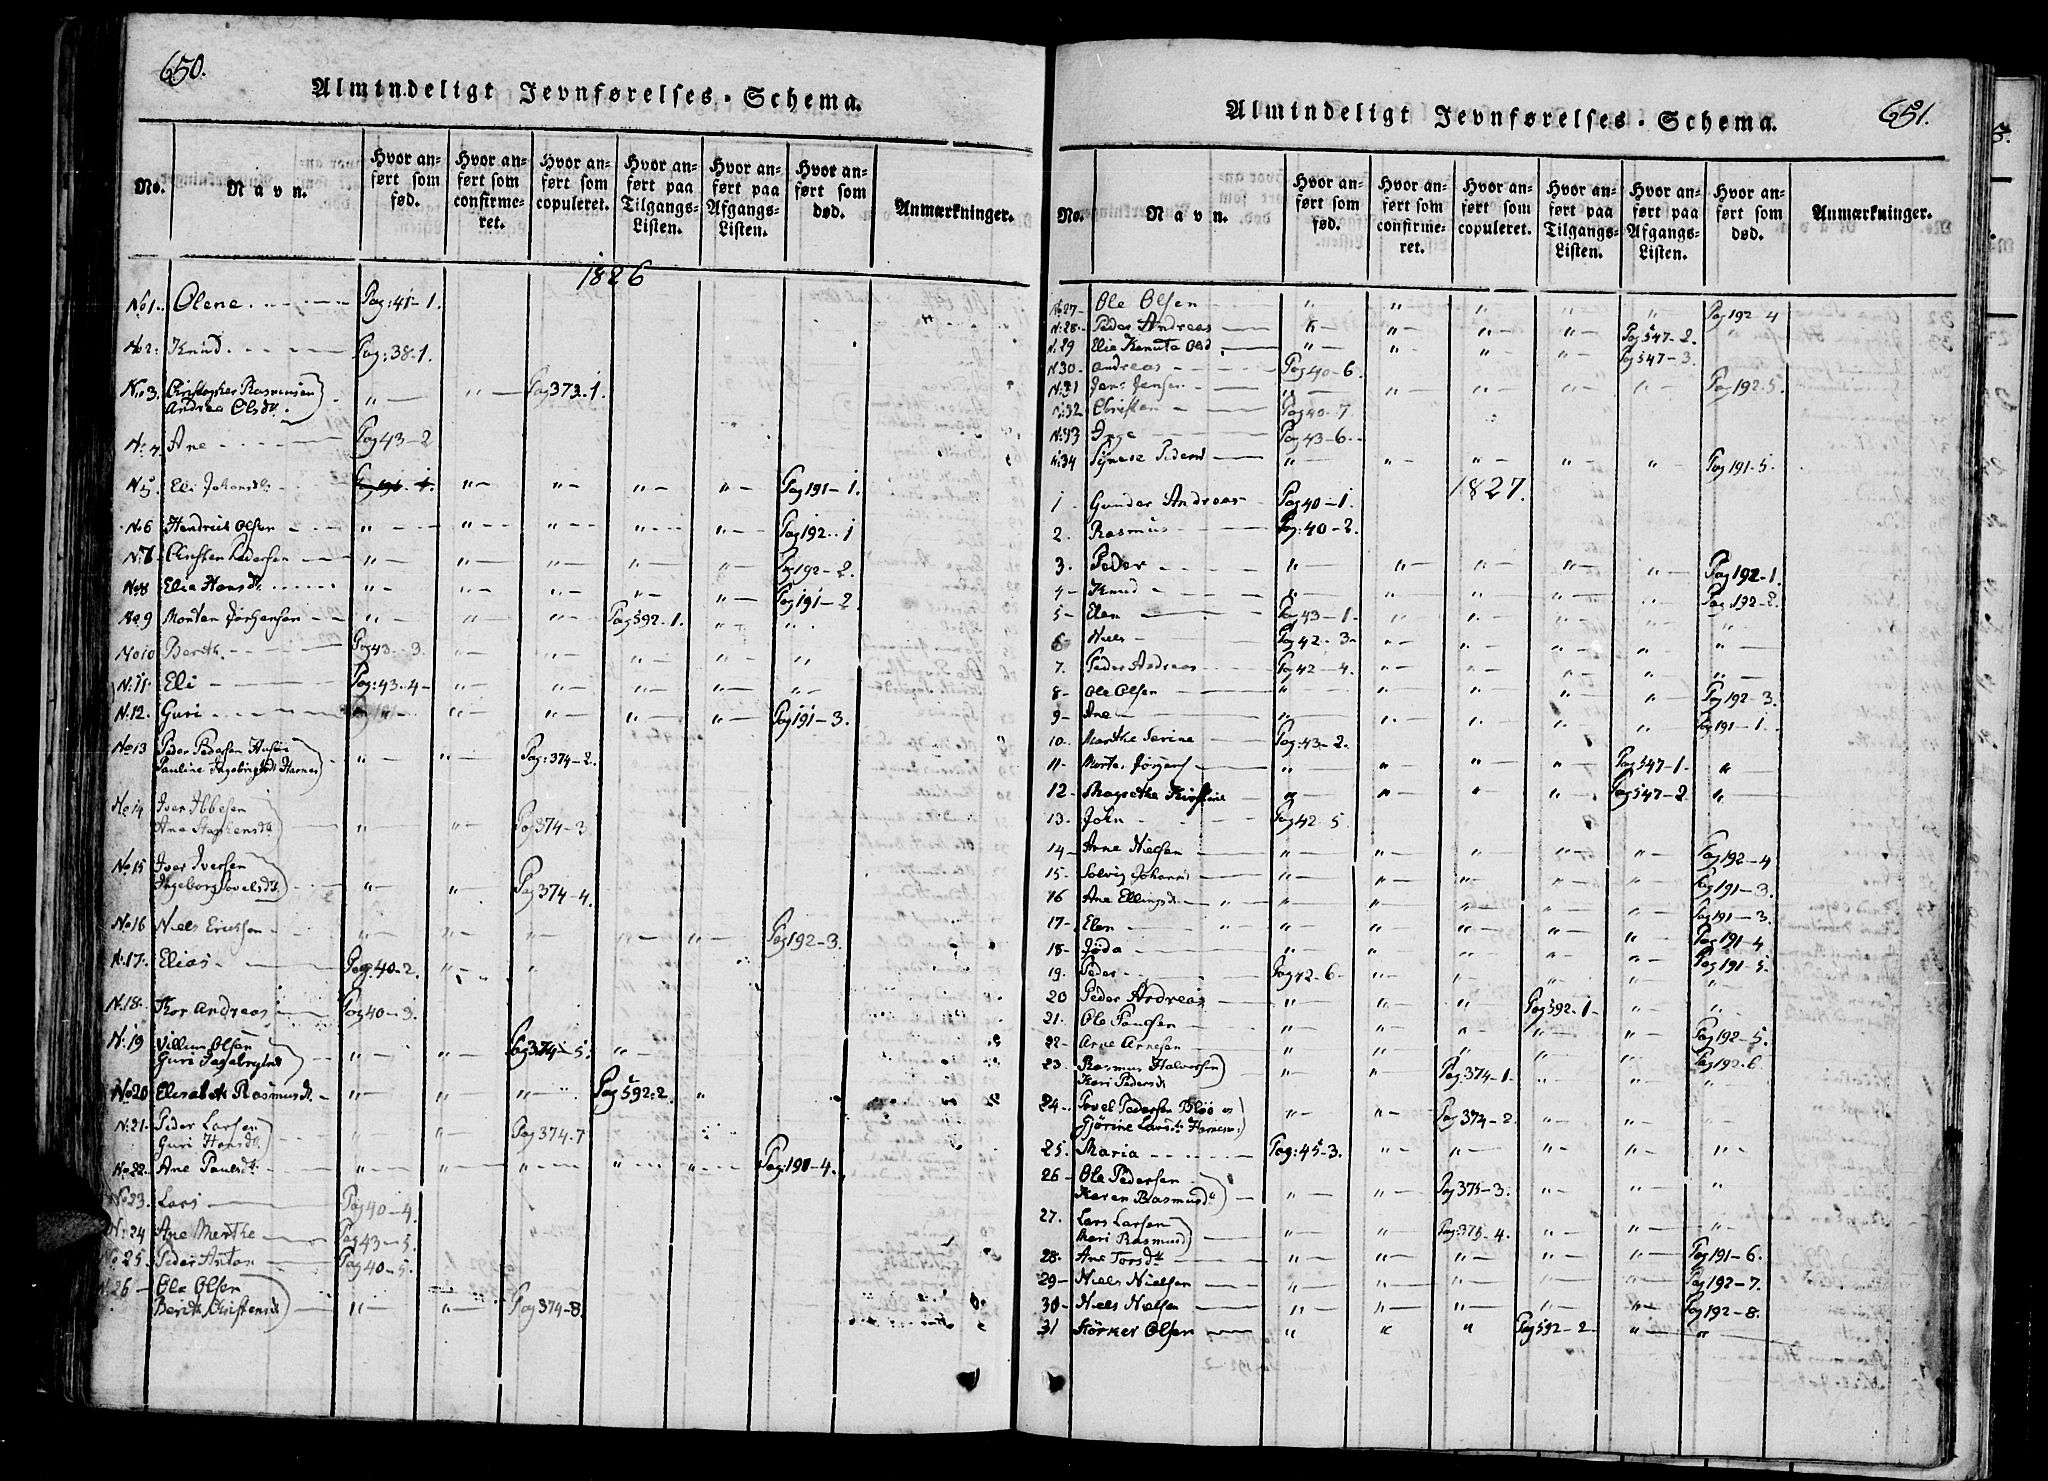 650.
Almindeligt Jevnførelses-Schema.
No. Navn. Hvor anført som fød. Hvor anført som confirmeret. Hvor anført som copuleret. Hvor anført paa Tilgangs-Listen. Hvor anført paa Afgangs-Listen. Hvor anført som død. Anmærkninger.
1826
No 1. Olene. Pag: 41-1.
No 2. Knud. Pag: 38-1.
No 3. Christopher Rasmussen
Andrea Olsdt. " " Pag 373-1.
No 4. Ane Pag 43-2
No 5. Eli Johansdt. " " " " Pag 191-1.
No 6 Hendrick Olsen " " " " " Pag 192-1
No 7 Christen Pedersen " " " " " Pag 192-2.
No 8 Elie Hansdt. " " " " " Pag 191-2
No 9 Morten Jørgensen " " " Pag 592-1. " "
No 10 Berith. Pag 43-3. " " " " "
No 11. Eli Pag: 43-4 " " " " "
No 12. Guri " " " " " Pag 191-3.
No 13 Peder Pedersen Husøi
Pauline Ingebrigtsdt Harnes " " Pag: 374-2.
No 14 Iver Ibbesen
Ane " " Pag 374-3
No 15 Iver Iversen
Ingeborg Povelsdt. " " Pag 374-4.
No 16 Niels Ericksen " " " " " Pag 192-3.
No 17. Elias Pag: 40-2. " "
No 18. Kor Andreas Pag 40-3.
No 19 Villum Olsen
Guri Ingebrigtsdt " " Pag 374-5. "
No 20 Elisabeth Rasmusdt. " " " Pag 592-2. "
No 21. Peder Larsen
Guri Hansdt. " " Pag 374-7
No 22. Ane Paulsdt. " " " " " Pag: 191-4.
No 23. Lars Pag 40-4.
No 24 Ane Merthe Pag 43-5.
No 25. Peder Anton Pag 40-5.
No 26 Ole Olsen
Berith Christensdt " " Pag 374-8.
651.
Almindeligt Jevnførelses-Schema.
No. Navn. Hvor anført som fød. Hvor anført som confirmeret. Hvor anført som copuleret. Hvor anført paa Tilgangs-Listen. Hvor anført paa Afgangs-Listen. Hvor anført som død. Anmærkninger.
No 27 Ole Olsen " " " " " Pag 192-4
No 28. Peder Andreas " " " " Pag 547-2.
No 29 Elie Olsd " " " " Pag 547-3.
No 30. Andreas Pag 40-6.
No 31 Jens Jensen " " " " " Pag 192-5.
No 32 Christen Pag 40-7
No 33 Inge Pag 43-6.
No 34 Pedersd " " " " " Pag 191-5.
1827.
1. Gunder Andreas Pag 40-1.
2. Rasmus Pag: 40-2.
3. Peder " " " " " Pag 192-1.
4 Knud " " " " " Pag 192-2.
5 Elen Pag 43-1. " " " " "
6 Niels Pag 42-3 " " " " "
7. Peder Andreas Pag 42-4. " " " " "
8 Ole Olsen " " " " " Pag 192-3.
9 Ane " " " " " Pag 191-1.
10. Marthe Serine Pag: 43-2.
11. Morten Jørgens " " " " Pag 547-1. "
12 Magrethe Kirstine " " " " Pag 547-2 "
13. John Pag 42-5
14 Arne Nielsen " " " " " Pag 192-4
15. Solvig Johansd " " " " " Pag 191-3.
16 Ane Ellingsdt " " " " " Pag 191-3.
17. Elen " " " " " Pag 191-4
18. Jøda " " " " " Pag 191-5.
19. Peder Pag 42-6. " " " " "
20 Peder Andreas " " " Pag 592-1 " "
21. Ole Paulsen " " " " " Pag 192-5.
22 Arne Arnesen " " " " " Pag 192-6.
23. Rasmus Halversen
Kari Pedersdt " " Pag: 374-1. " " "
24. Povel Pedersen Bløo og
Gjørine Larsdt Harnes. " " Pag 374-2. " " "
25. Maria Pag: 45-3. " " " " "
26 Ole Pedersen
Karen Rasmusdt " " Pag 375-3. " " "
27. Lars Larsen
Mari Rasmusd " " Pag: 375-4. " " "
28. Ane Torsdt " " " " " Pag 191-6.
29 Niels Nielsen " " " " " Pag 192-7.
30 Niels Nielsen " " " " " Pag 192-8.
31 Størker Olsen " " " Pag 592-2 " "